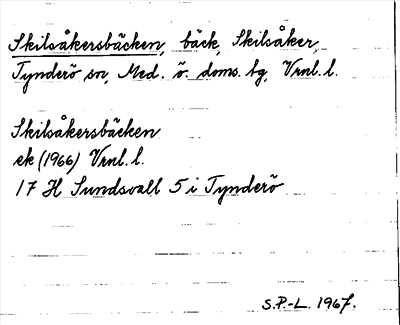 Skilsåkersbäcken, bäck, Skilsåker,
Tynderö sn, Med. ö. doms. bg, Vrnl. l.
Skilsåkersbäcken
ek (1966) Vrnl. l.
17 H Sundsvall 5 i Tynderö
S.P.-L. 1967.